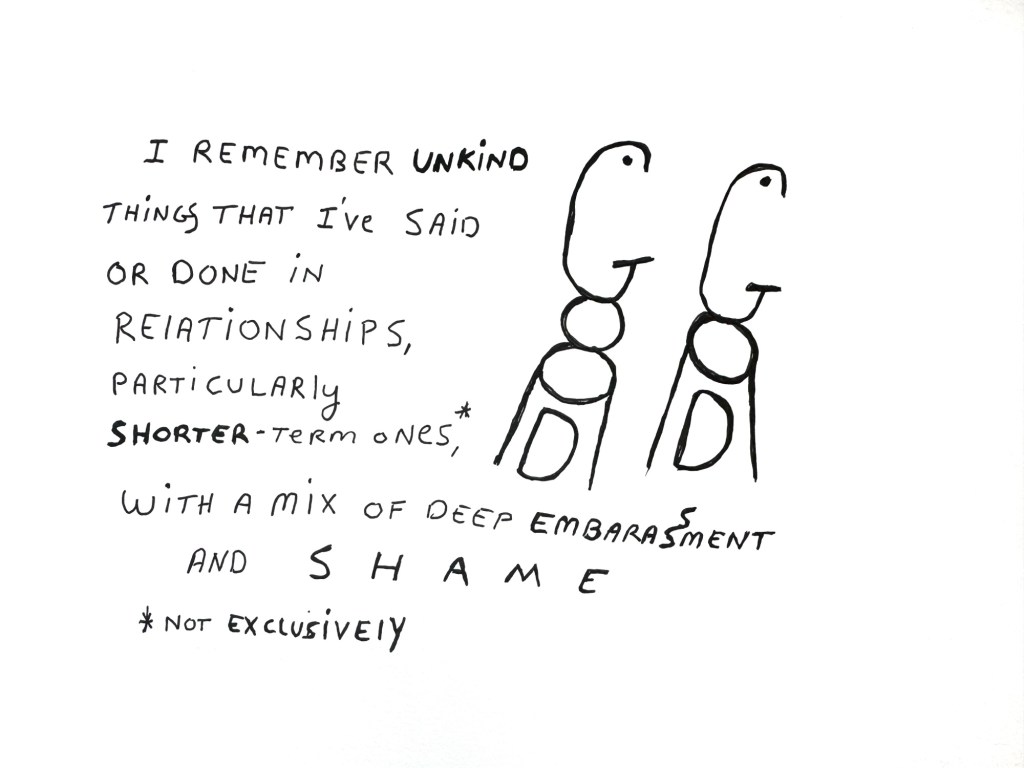 I REMEMBER UNKIND
THINGS THAT I've SAID
OR DONE IN
RElATIONSHIPS,
PARTICULARly
SHORTER-TERM ONES,*
WITH A MIX OF DEEP EMBARASSMENT
AND S H A M E
*NOT EXCLUSIVElY
GOOD
GOD